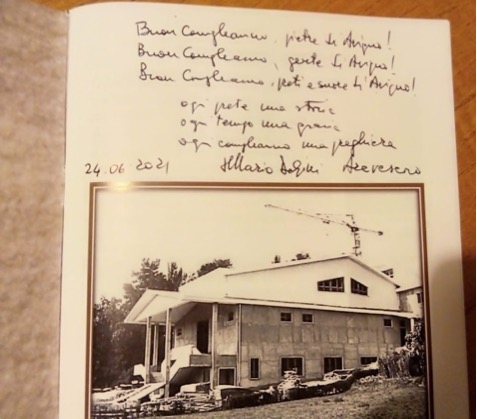 Buon Compleanno, pietre di Avigno!
Buon Compleanno, gente di Avigno!
Buon Compleanno, preti e suore di Avigno!
ogni pietra una storia
ogni tempo una grazia
ogni compleanno una preghiera
24.06 2021 + Mario Delpini Arcivescovo